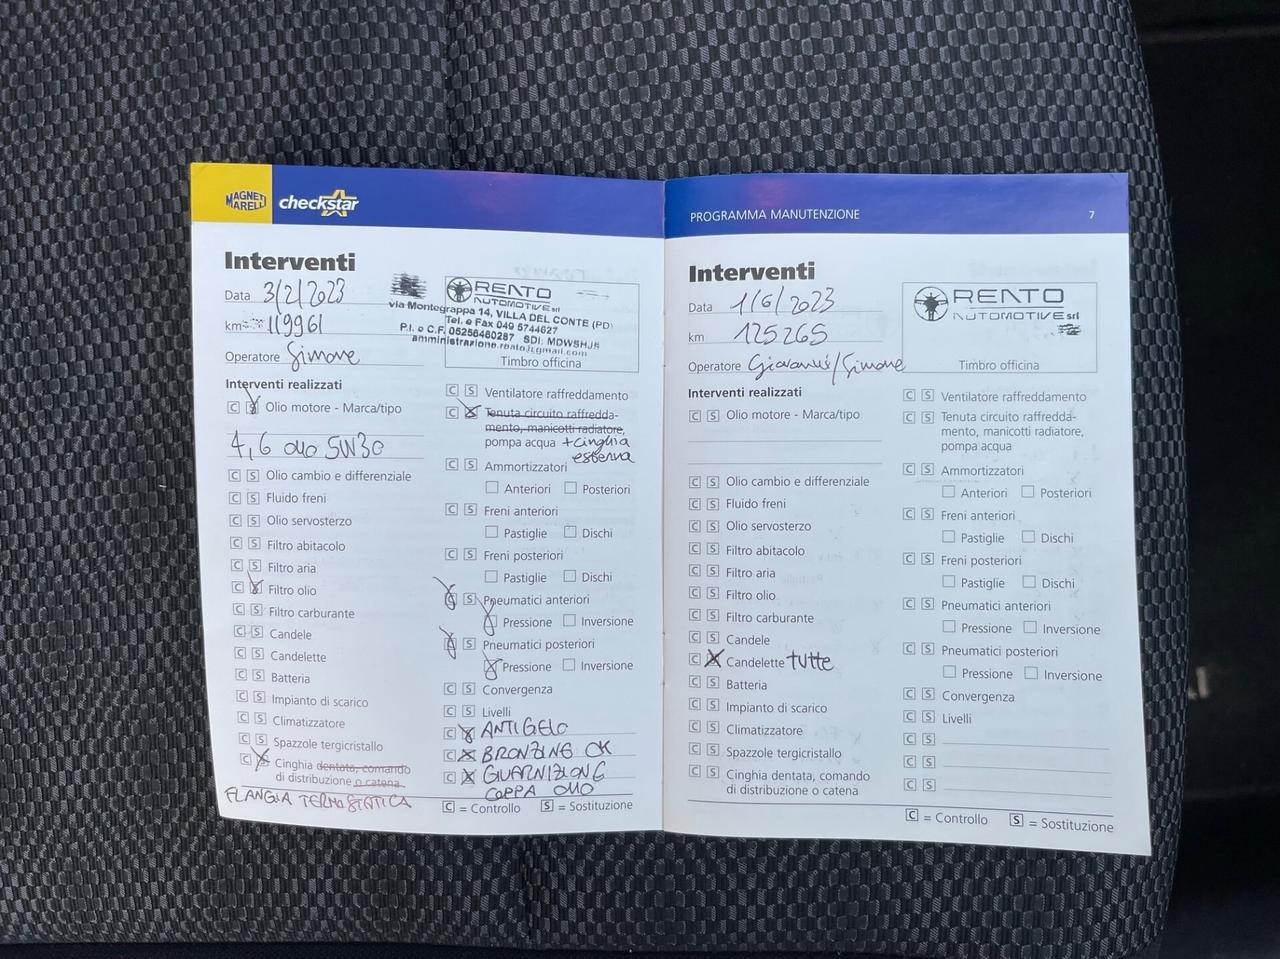 MAGNETI MARELLI checkstar
Interventi
Data 3/2/2023
km 119961
Operatore Simone
RENTO
AUTOMOTIVE srl
via Montegrappa 14, VILLA DEL CONTE (PD)
Tel. e Fax 049 5744627
P.I. e C.F. 05256460287 SDI: MDWSHJ5
amministrazione.rento@gmail.com
Timbro officina
Interventi realizzati
C S Olio motore - Marca/tipo
4,6 olio 5W30
C S Olio cambio e differenziale
C S Fluido freni
C S Olio servosterzo
C S Filtro abitacolo
C S Filtro aria
C S Filtro olio
C S Filtro carburante
C S Candele
C S Candelette
C S Batteria
C S Impianto di scarico
C S Climatizzatore
C S Spazzole tergicristallo
C S Cinghia dentata, comando
di distribuzione o catena
FLANGIA TERMOSTATICA
C S Ventilatore raffreddamento
C S Tenuta circuito raffredda-
mento, manicotti radiatore,
pompa acqua + cinghia
esterna
C S Ammortizzatori
Anteriori Posteriori
C S Freni anteriori
Pastiglie Dischi
C S Freni posteriori
Pastiglie Dischi
C S Pneumatici anteriori
Pressione Inversione
C S Pneumatici posteriori
Pressione Inversione
C S Convergenza
C S Livelli
C S ANTIGELO
C S BRONZINE OK
C S GUARNIZIONE
COPPA OLIO
C = Controllo S = Sostituzione
PROGRAMMA MANUTENZIONE 7
Interventi
Data 1/6/2023
km 125265
Operatore Giovanni/Simone
RENTO
AUTOMOTIVE srl
Timbro officina
Interventi realizzati
C S Olio motore - Marca/tipo
C S Olio cambio e differenziale
C S Fluido freni
C S Olio servosterzo
C S Filtro abitacolo
C S Filtro aria
C S Filtro olio
C S Filtro carburante
C S Candele
C S Candelette tutte
C S Batteria
C S Impianto di scarico
C S Climatizzatore
C S Spazzole tergicristallo
C S Cinghia dentata, comando
di distribuzione o catena
C S Ventilatore raffreddamento
C S Tenuta circuito raffredda-
mento, manicotti radiatore,
pompa acqua
C S Ammortizzatori
Anteriori Posteriori
C S Freni anteriori
Pastiglie Dischi
C S Freni posteriori
Pastiglie Dischi
C S Pneumatici anteriori
Pressione Inversione
C S Pneumatici posteriori
Pressione Inversione
C S Convergenza
C S Livelli
C S
C S
C S
C = Controllo S = Sostituzione